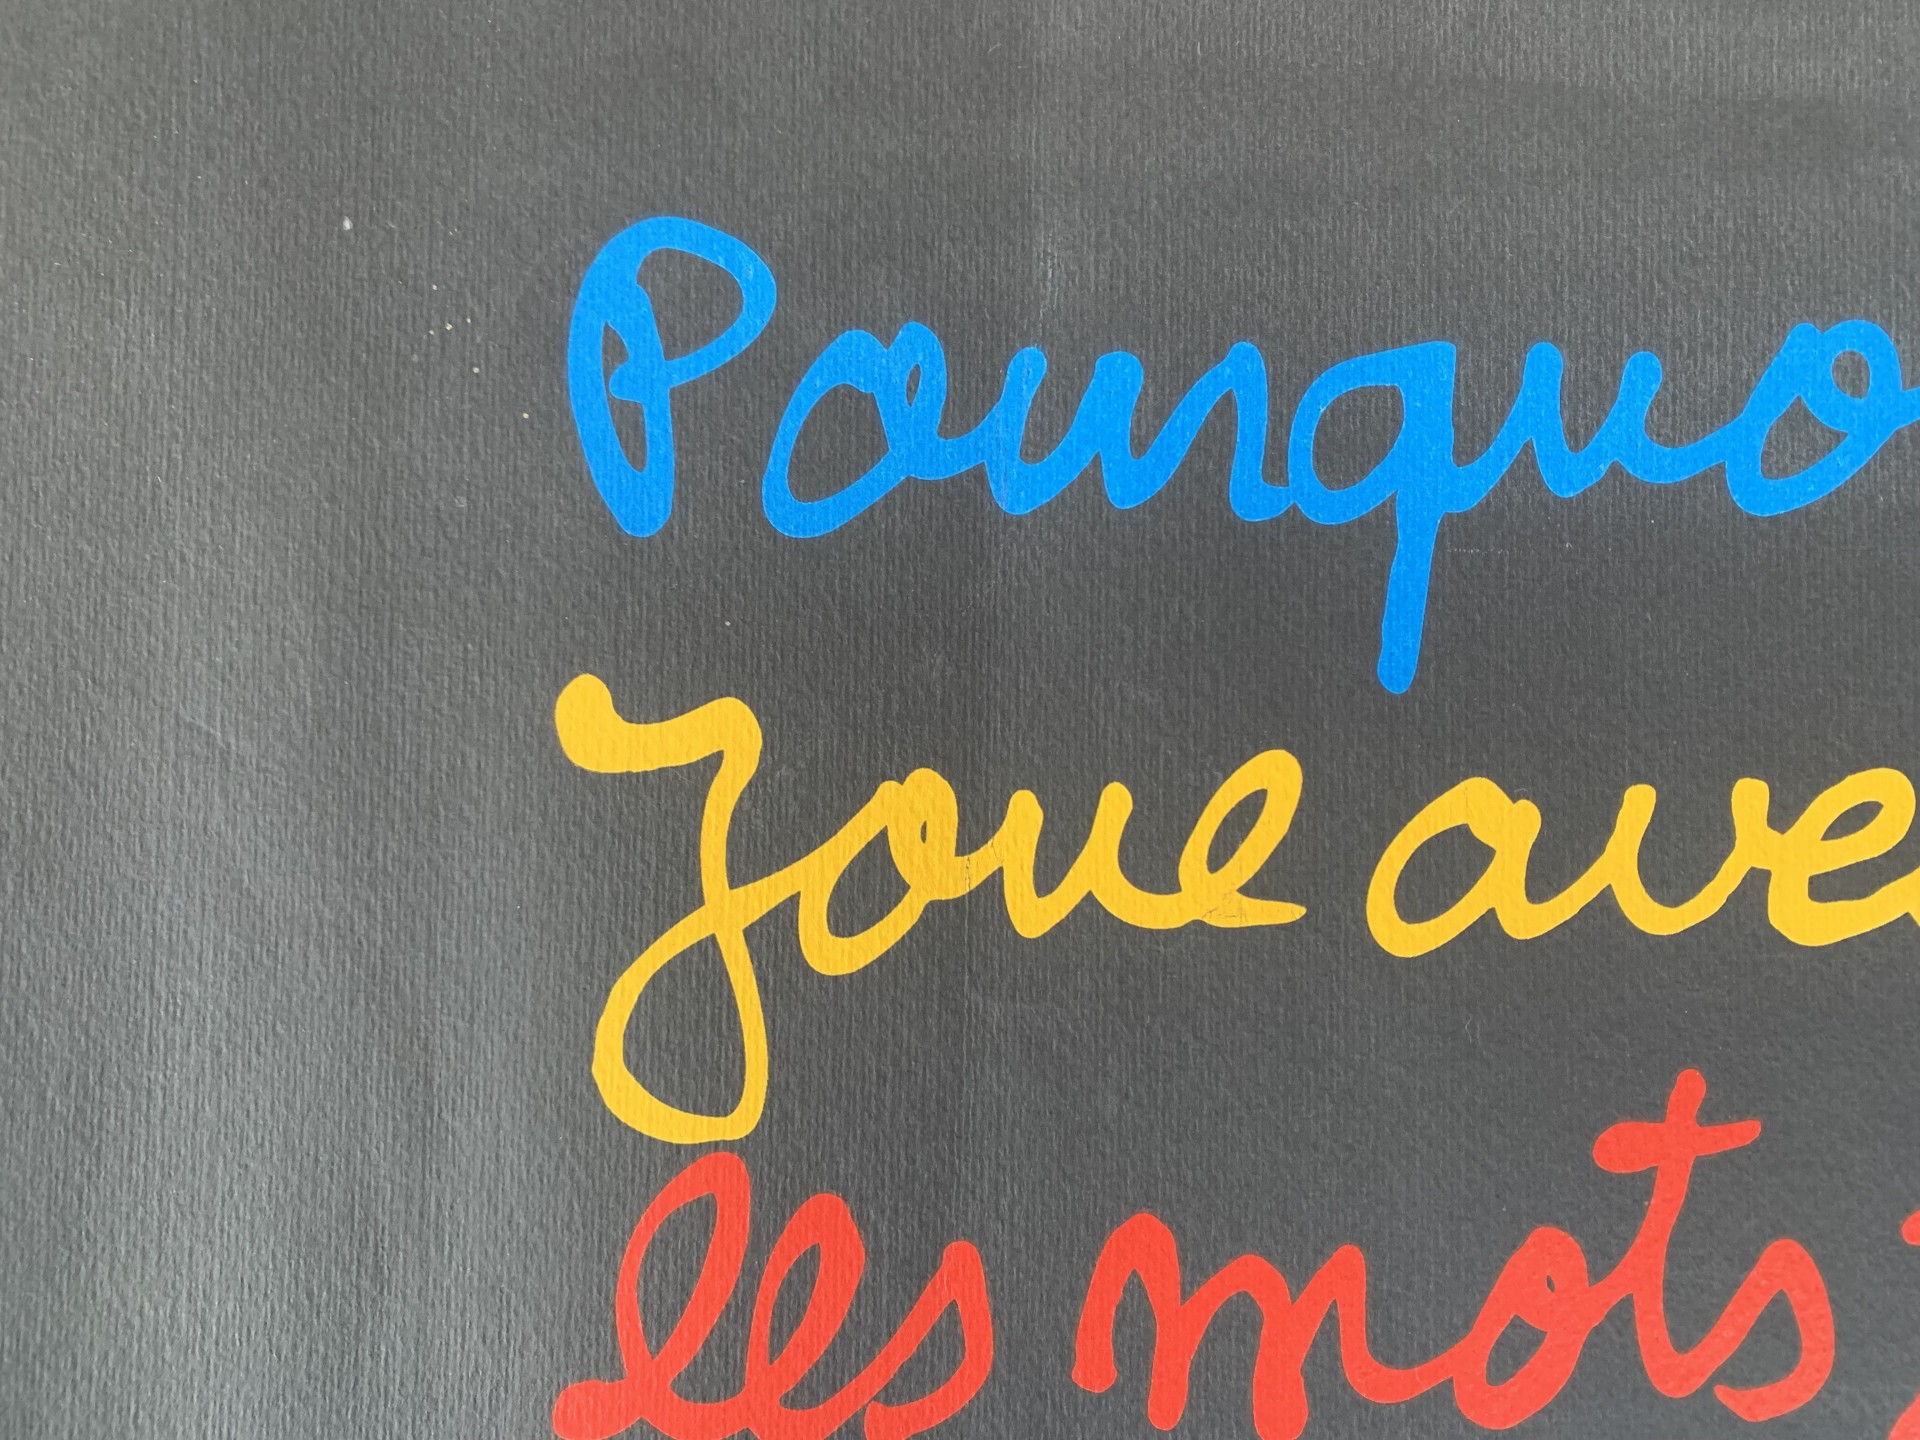 Pourquo
Joue avec
les mots